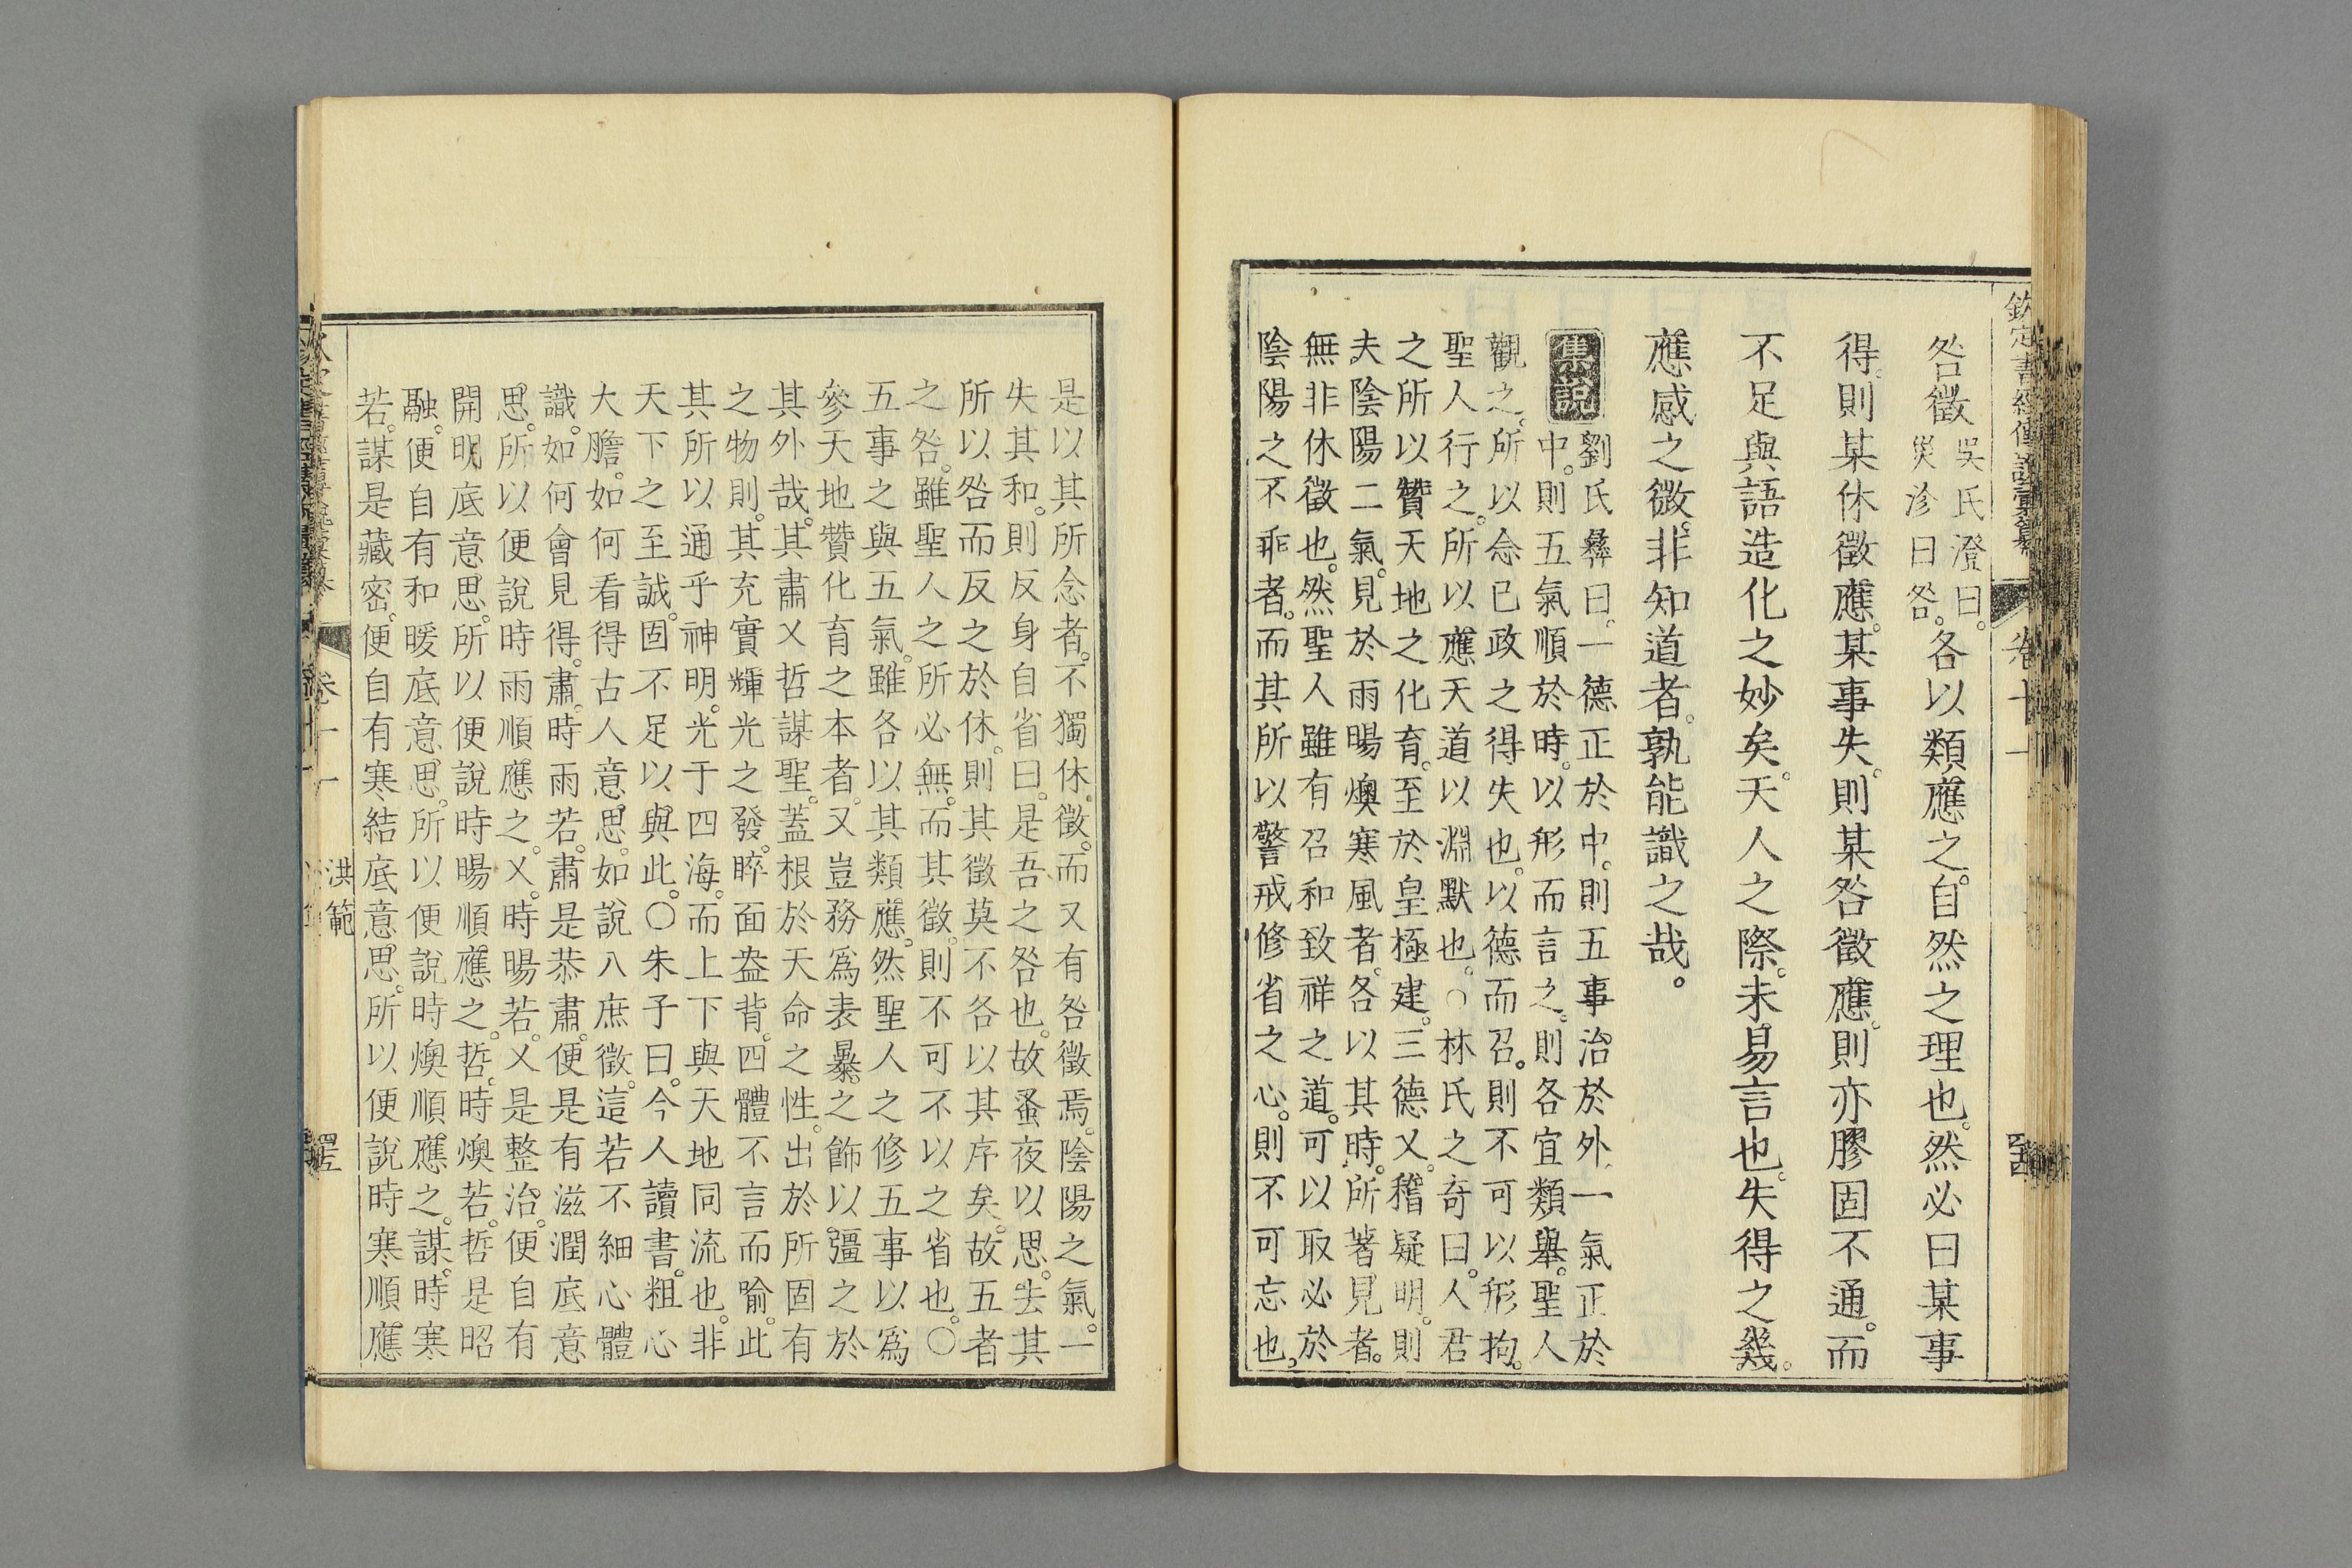 欽定書經傳說彙纂 卷十一
咎徵。吳氏澄曰。
災沴曰咎。各以類應之。自然之理也。然必曰某事
得。則某休徵應。某事失。則某咎徵應。則亦膠固不通。而
不足與語造化之妙矣。天人之際。未易言也。失得之幾。
應感之微。非知道者。孰能識之哉。
集說 劉氏彝曰。一德正於中。則五事治於外。一氣正於
中。則五氣順於時。以形而言之。則各宜類舉。聖人
觀之。所以念已政之得失也。以德而召。則不可以形拘。
聖人行之。所以應天道以淵默也。○林氏之奇曰。人君
之所以贊天地之化育。至於皇極建。三德乂。稽疑明。則
夫陰陽二氣。見於雨暘燠寒風者。各以其時。所著見者。
無非休徵也。然聖人雖有召和致祥之道。可以取必於
陰陽之不乖者。而其所以警戒修省之心。則不可忘也。
是以其所念者。不獨休徵。而又有咎徵焉。陰陽之氣。一
失其和。則反身自省曰。是吾之咎也。故蚤夜以思。去其
所以咎而反之於休。則其徵莫不各以其序矣。故五者
之咎。雖聖人之所必無。而其徵。則不可不以之省也。○
五事之與五氣。雖各以其類應。然聖人之修五事以爲
參天地贊化育之本者。又豈務爲表暴之飾。以彊之於
其外哉。其肅乂哲謀聖。蓋根於天命之性。出於所固有
之物則。其充實輝光之發。睟面盎背。四體不言而喻。此
其所以通乎神明。光于四海。而上下與天地同流也。非
天下之至誠。固不足以與此。○朱子曰。今人讀書。粗心
大膽。如何看得古人意思。如說八庶徵。這若不細心體
識。如何會見得。肅。時雨若。肅是恭肅。便是有滋潤底意
思。所以便說時雨順應之。乂。時暘若。乂是整治。便自有
開明底意思。所以便說時暘順應之。哲。時燠若。哲是昭
融。便自有和暖底意思。所以便說時燠順應之。謀。時寒
若。謀是藏密。便自有寒結底意思。所以便說時寒順應
卷十一 洪範